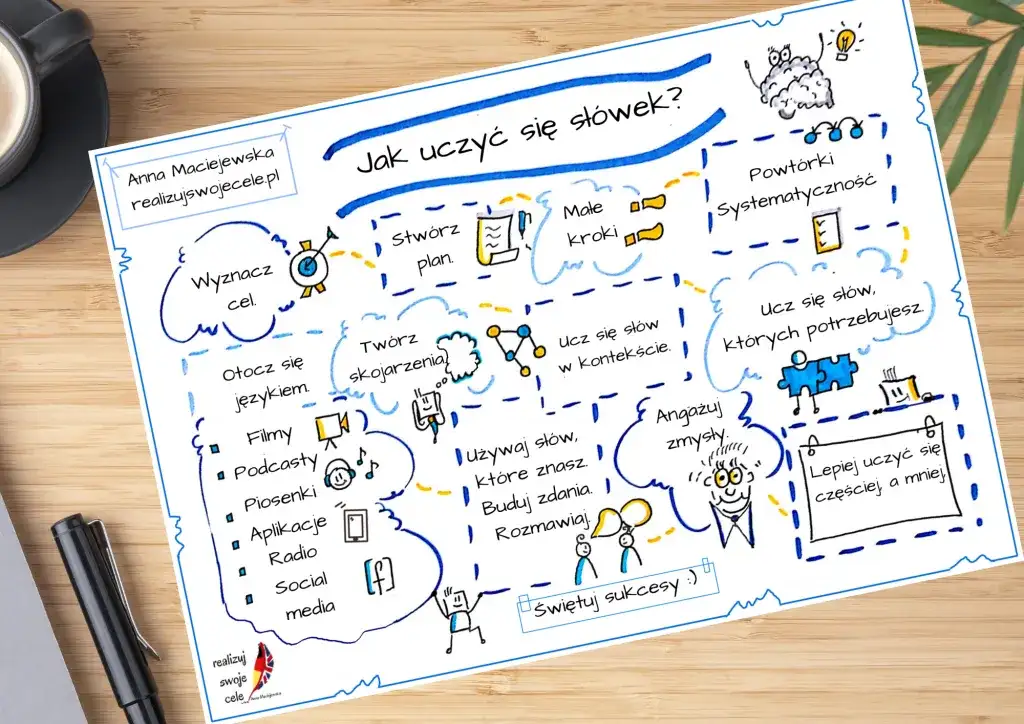 Jak uczyć się słówek?
Anna Maciejewska
realizujswojecele.pl
Wyznacz
cel.
Stwórz
plan.
Małe
kroki
Powtórki
Systematyczność
Otocz się
językiem.
Filmy
Podcasty
Piosenki
Aplikacje
Radio
Social
media
f
Twórz
skojarzenia
Ucz się słów
w kontekście.
Ucz się słów,
których potrzebujesz.
Używaj słów,
które znasz.
Buduj zdania.
Rozmawiaj.
Angażuj
zmysły.
Lepiej uczyć się
częściej, a mniej.
Świętuj sukcesy :)
realizuj
swoje
cele
Anna Maciejewska